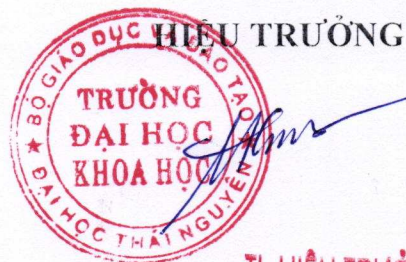 HIỆU TRƯỞNG
BỘ GIÁO DỤC VÀ ĐÀO TẠO
TRƯỜNG
ĐẠI HỌC
KHOA HỌC
ĐẠI HỌC THÁI NGUYÊN